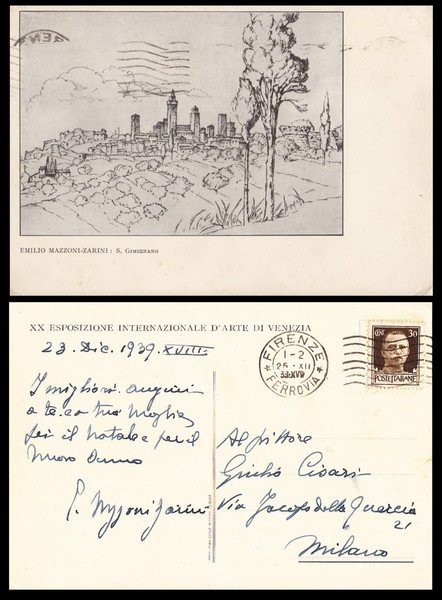 EMILIO MAZZONI-ZARINI: S. GIMIGNANO
XX ESPOSIZIONE INTERNAZIONALE D'ARTE DI VENEZIA
23. Dic. 1939. XVIII.
I migliori auguri
a te e a tua moglie
per il Natale e per il
Nuovo Anno
E. Mazzoni Zarini
FIRENZE
1-2
26·XII
39·XVIII
FERROVIA
CENT. 30
POSTE ITALIANE
Al pittore
Giulio Cisari
Via Jacopo della Quercia
21
Milano